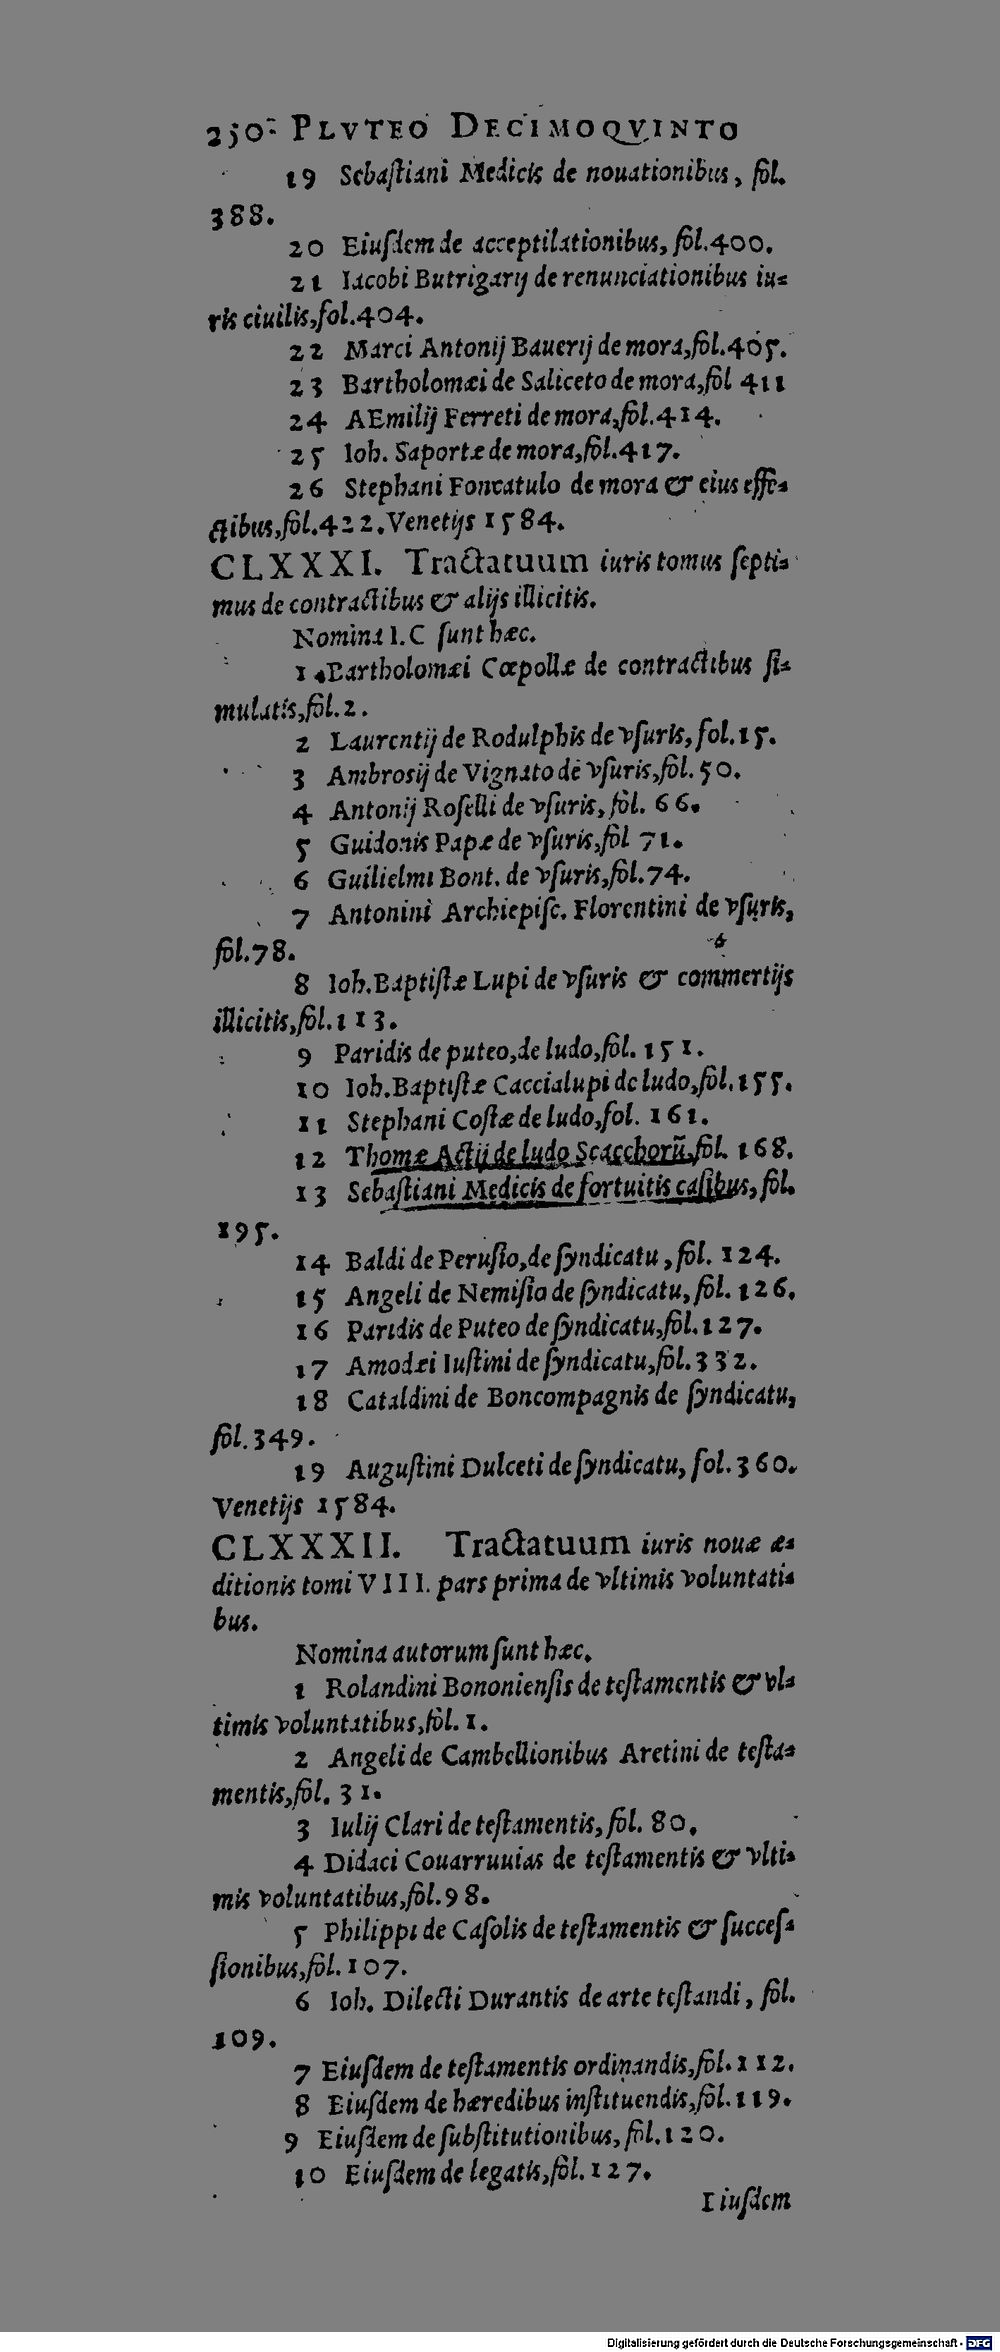 250 PLVTEO DECIMOQVINTO
19 Sebaſtiani Medicis de nouationibus, fol.
388.
20 Eiuſdem de acceptilationibus, fol.400.
21 Iacobi Butrigarij de renunciationibus iu=
ris ciuilis,fol.404.
22 Marci Antonij Bauerij de mora,fol.405.
23 Bartholomæi de Saliceto de mora,fol 411
24 AEmilij Ferreti de mora,fol.414.
25 Ioh. Saportæ de mora,fol.417.
26 Stephani Foncatulo de mora & eius effe=
ctibus,fol.422.Venetijs 1584.
CLXXXI. Tractatuum iuris tomus ſepti=
mus de contractibus & alijs illicitis.
Nomina I.C ſunt hæc.
1 Bartholomæi Cœpollæ de contractibus ſi=
mulatis,fol.2.
2 Laurentij de Rodulphis de vſuris, fol.15.
3 Ambroſij de Vignato de vſuris,fol. 50.
4 Antonij Roſelli de vſuris, fol. 66.
5 Guidonis Papæ de vſuris,fol 71.
6 Guilielmi Bont. de vſuris,fol.74.
7 Antonini Archiepiſc. Florentini de vſuris,
fol.78.
8 Ioh.Baptiſtæ Lupi de vſuris & commertijs
illicitis,fol.113.
9 Paridis de puteo,de ludo,fol. 151.
10 Ioh.Baptiſtæ Caccialupi de ludo,fol.155.
11 Stephani Coſtæ de ludo,fol. 161.
12 Thomæ Actij de ludo Scacchorũ,fol. 168.
13 Sebaſtiani Medicis de fortuitis caſibus, fol.
195.
14 Baldi de Peruſio,de ſyndicatu, fol. 124.
15 Angeli de Nemiſio de ſyndicatu, fol. 126.
16 Paridis de Puteo de ſyndicatu,fol.127.
17 Amodæi Iuſtini de ſyndicatu,fol.332.
18 Cataldini de Boncompagnis de ſyndicatu,
fol.349.
19 Auguſtini Dulceti de ſyndicatu, fol.360.
Venetijs 1584.
CLXXXII. Tractatuum iuris nouæ æ=
ditionis tomi VIII. pars prima de vltimis voluntati=
bus.
Nomina autorum ſunt hæc.
1 Rolandini Bononienſis de teſtamentis & vl=
timis voluntatibus,fol. 1.
2 Angeli de Cambellionibus Aretini de teſta=
mentis,fol. 31.
3 Iulij Clari de teſtamentis, fol. 80.
4 Didaci Couarruuias de teſtamentis & vlti=
mis voluntatibus,fol.98.
5 Philippi de Caſolis de teſtamentis & ſucceſ=
ſionibus,fol.107.
6 Ioh. Dilecti Durantis de arte teſtandi, fol.
109.
7 Eiuſdem de teſtamentis ordinandis,fol.112.
8 Eiuſdem de hæredibus inſtituendis,fol.119.
9 Eiuſdem de ſubſtitutionibus, fol.120.
10 Eiuſdem de legatis,fol.127.
Eiuſdem
Digitalisierung gefördert durch die Deutsche Forschungsgemeinschaft - DFG